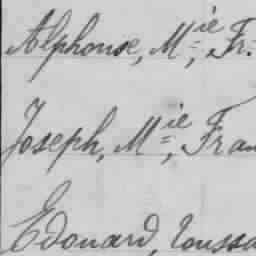 Alphonse, Mie, Fr.
Joseph, Mie, Fran
Edouard, Toussa